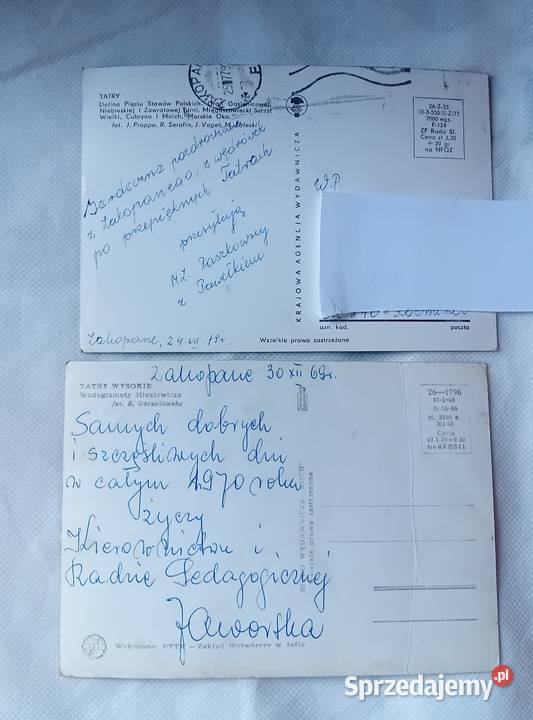 ZAKOPANE
TATRY
Dolina Pięciu Stawów Polskich, Grań Gąsienicowej,
Niebieskiej i Zawratowej Turni, Mięguszowiecki Szczyt
Wielki, Cubryna i Mnich, Morskie Oko.
fot. J. Proppe, R. Serafin, J. Vogel,
Serdeczne pozdrowienia
z Zakopanego, z wędrówek
po przepięknych Tatrach
przesyłają
M.Z. Paszkowscy
z Pawełkiem
Zakopane, 24 VII
KRAJOWA AGENCJA WYDAWNICZA
W.P.
26-Z-33
III-3-550/II-Z/77
7000 egz.
P-124
ZF Ruda Śl.
Cena zł 3,30
+ 20 gr
na NFOZ
azn. kod.
poczta
Wszelkie prawa zastrzeżone
Zakopane 30 XII 69r.
TATRY WYSOKIE
Wodogrzmoty Mickiewicza
fot. K. Gorazdowska
Samych dobrych
i szczęśliwych dni
w całym 1970 roku
życzy
Kierownictwu i
Radzie Pedagogicznej
Jaworska
BIURO WYDAWNICZE „RUCH"
Wszelkie prawa zastrzeżone
26—1796
Cena
Wykonano: PTTK — Zakład Wytwórczy w Jaśle
Sprzedajemy.pl